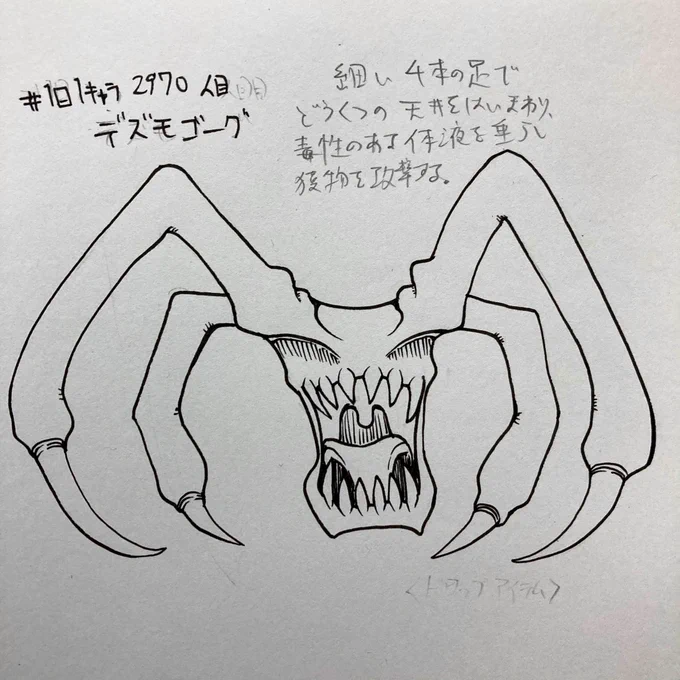 #1日1キャラ 2970人目
デズモゴーグ
細い4本の足で
どうくつの天井をはいまわり、
毒性のある体液を垂らし
獲物を攻撃する。
<ドロップアイテム>